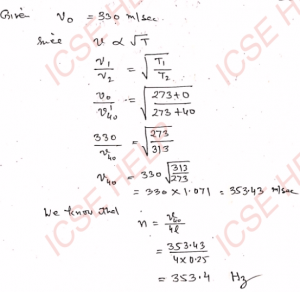 Given v₀ = 330 m/sec
since v ∝ √T
v₁/v₂ = √(T₁/T₂)
v₀/v₄₀ = √((273+0)/(273+40))
330/v₄₀ = √(273/313)
v₄₀ = 330 √(313/273)
= 330 × 1.071 = 353.43 m/sec
We know that n = v₄₀/4l
= 353.43/(4×0.25)
= 353.4 Hz
ICSE HELP
ICSE HELP
ICSE HELP